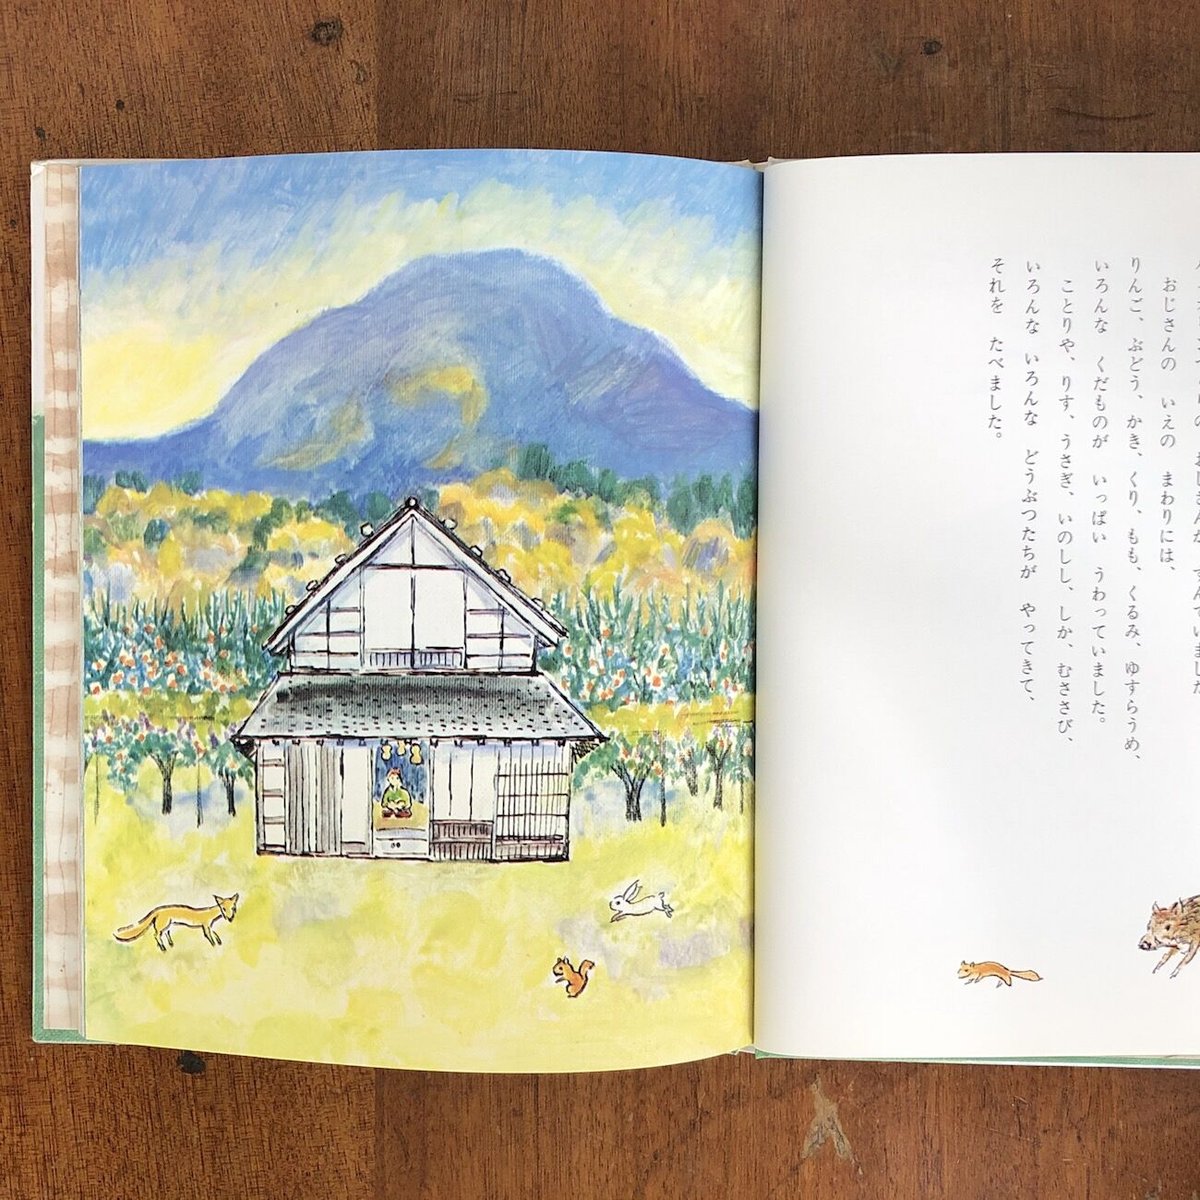 おじさんの いえの まわりには、
りんご、ぶどう、かき、くり、もも、くるみ、ゆすらうめ、
いろんな くだものが いっぱい うわっていました。
ことりや、りす、うさぎ、いのしし、しか、むささび、
いろんな いろんな どうぶつたちが やってきて、
それを たべました。